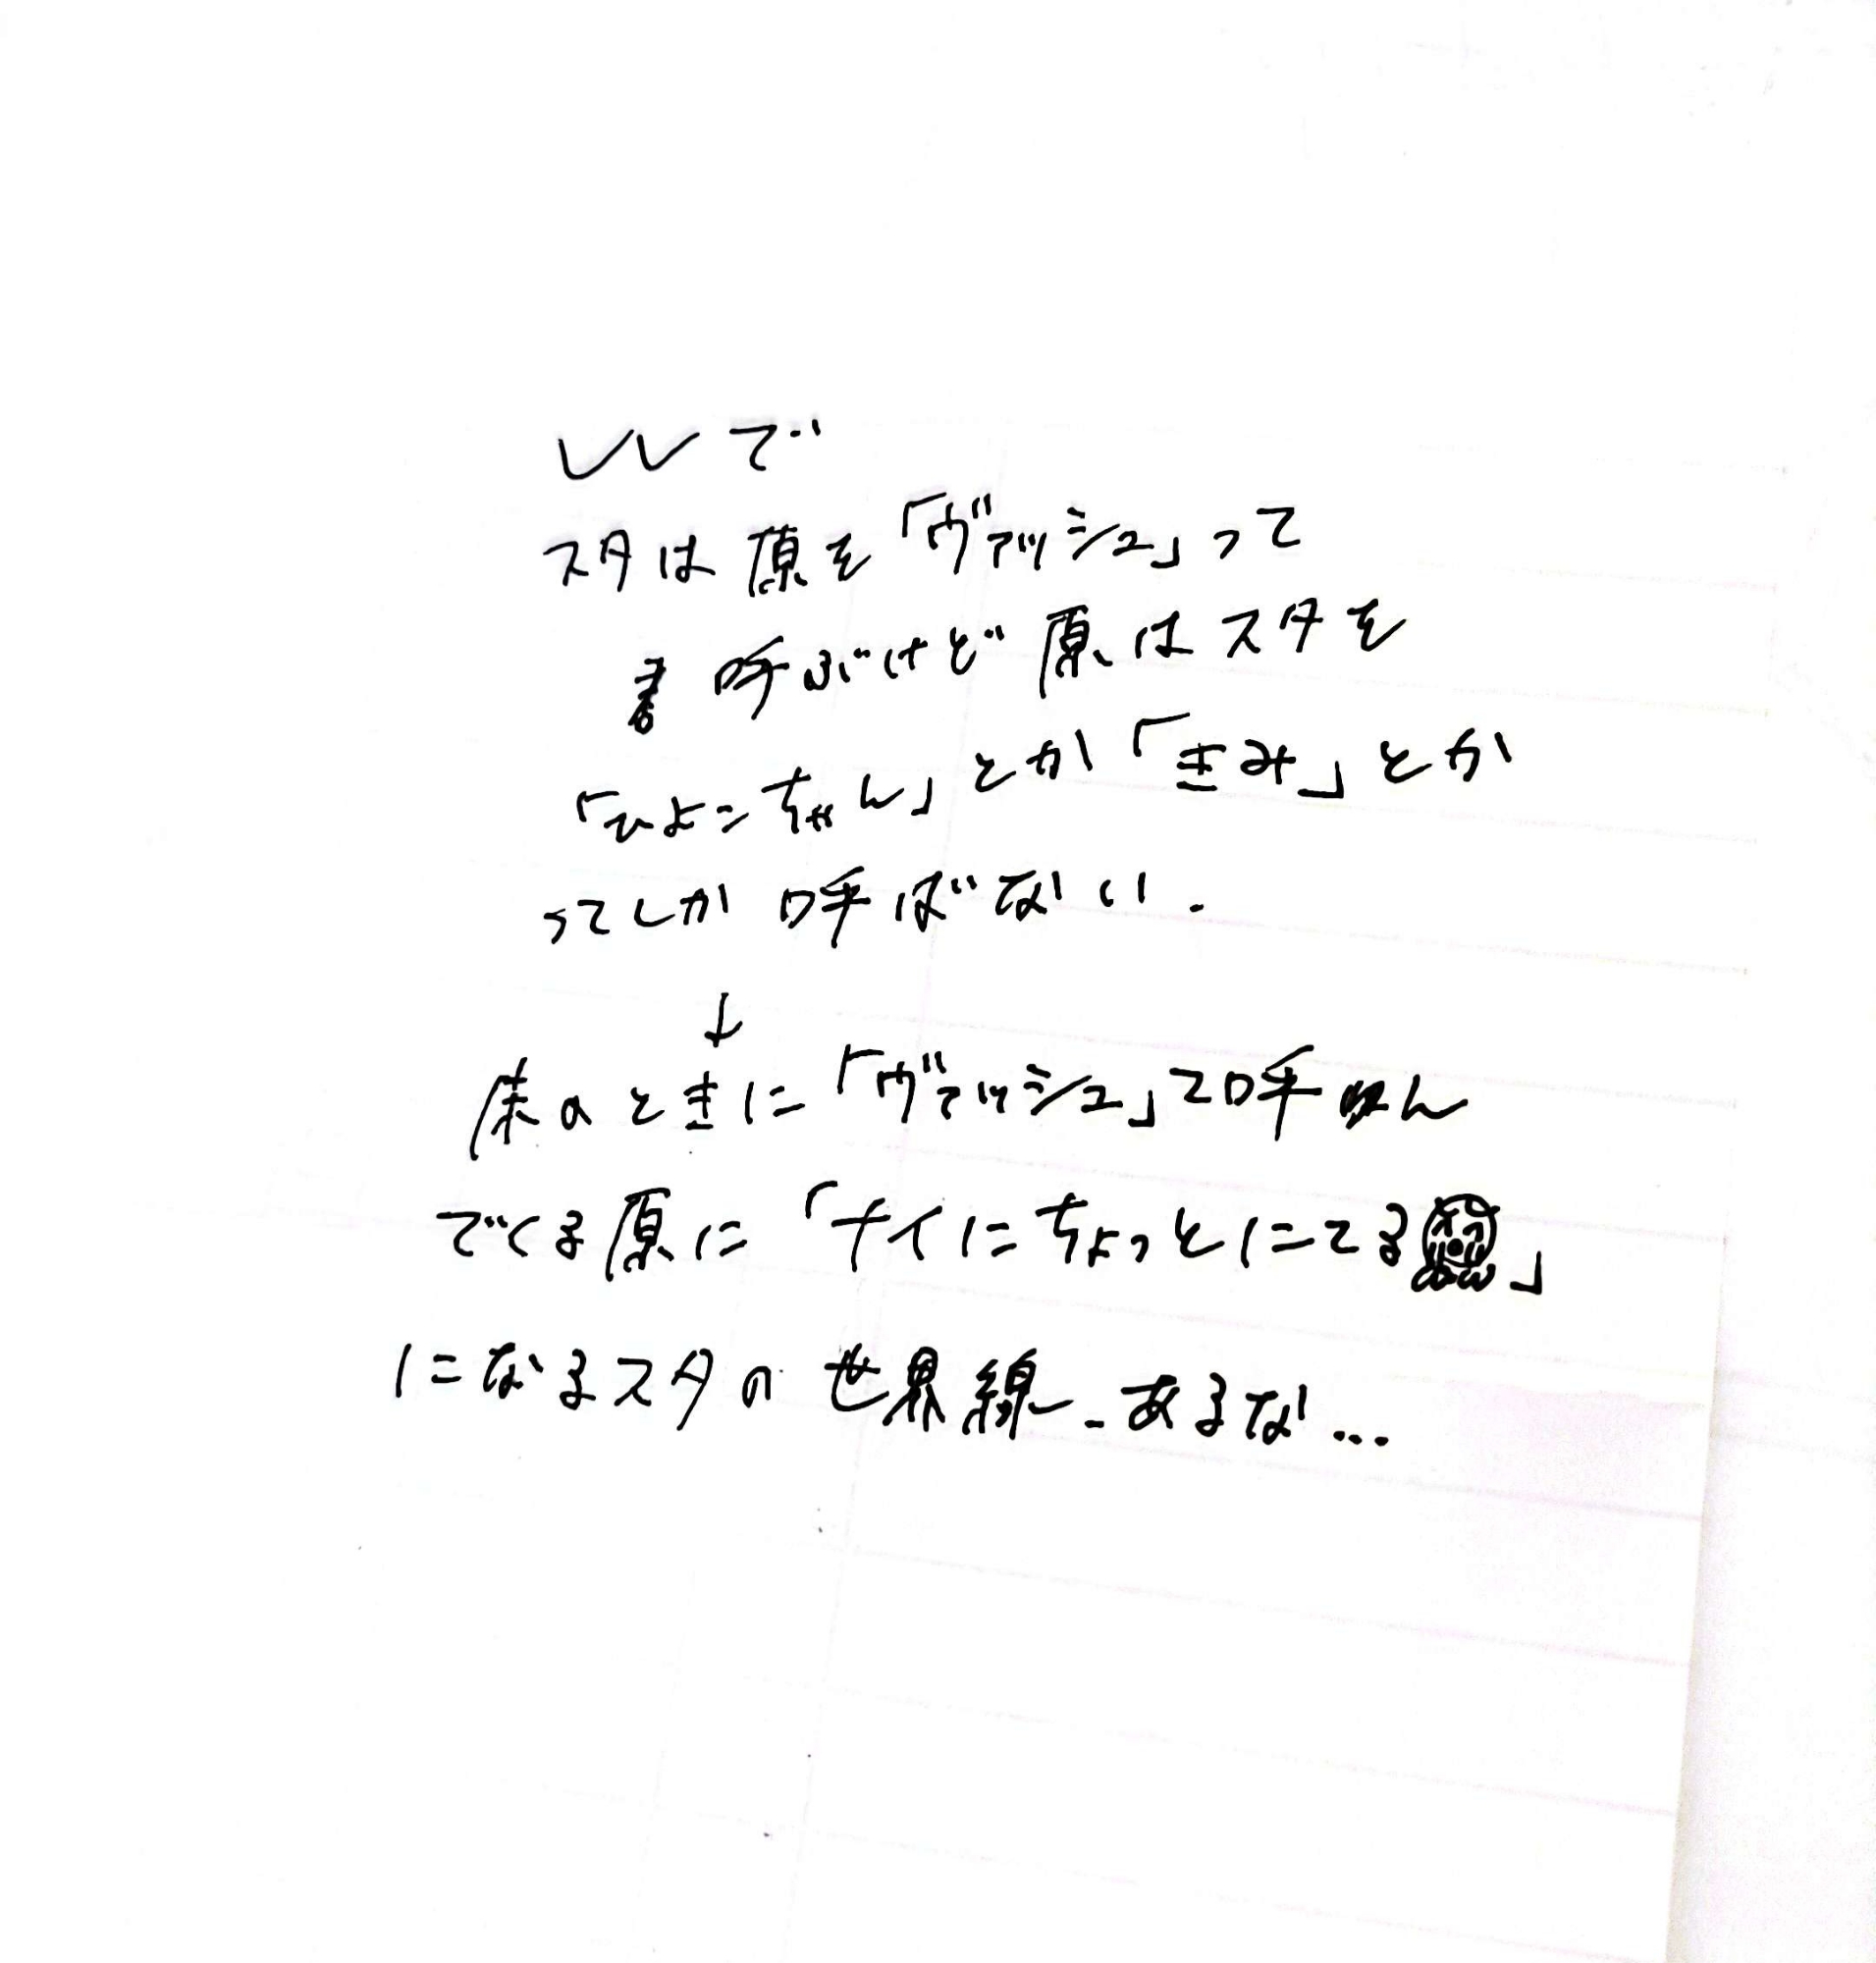 VVで
スタは原を「ヴァッシュ」って
呼ぶけど原はスタを
「ひよこちゃん」とか「きみ」とか
ってしか呼ばない.
↓
床のときに「ヴァッシュ」て呼んん
でくる原に「ナイにちょっとにてる😭」
になるスタの世界線.あるな…